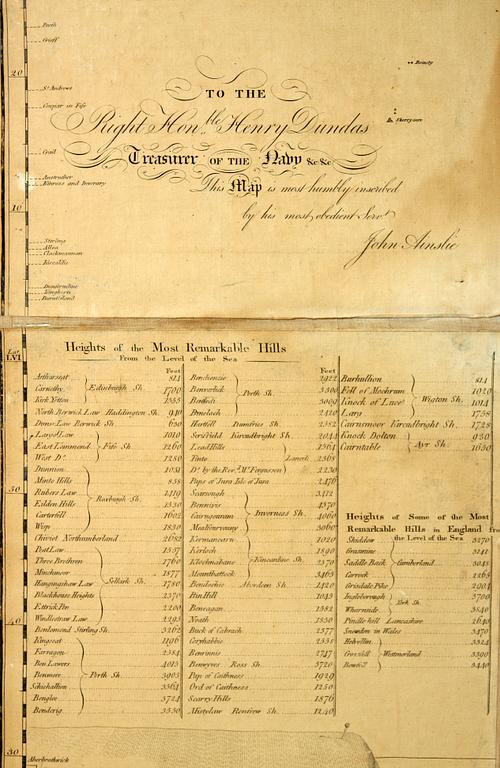 Perth
Crieff
20
St Andrews
Cowpar in Fife
Crail
Anstruther
Kilrenss and Inverary
10
Stirling
Alloa
Clackmannan
Kincardin
Dunfermline
Kinghorn
Burntisland
TO THE
Right Hon.ble Henry Dundas
Treasurer OF THE Navy &c &c
This Map is most humbly inscribed
by his most obedient Serv.t
John Ainslie
Lat.
LVI
Heights of the Most Remarkable Hills
From the Level of the Sea
Feet
Arthurseat 814
Carnethy Edinburgh Sh. 1700
Kirk Yetton 1555
North Berwick Law Haddington Sh. 940
Dunse Law Berwick Sh. 630
Largo Law 1010
East Lommond Fife Sh. 1260
West Do. 1280
Dunnion 1031
Minto Hills 858
Rubers Law Roxburgh Sh. 1419
Eildon Hills 1330
Carterfell 1602
Wisp 1830
Cheviot Northumberland 2682
Peat Law 1557
Three Brethren 1760
Minchmoor 1877
Hangingshaw Law Selkirk Sh. 1780
Blackhouse Heights 2370
Ettrick Pen 2200
Windlestraw Law 2295
Benlomond Stirling Sh. 3262
Kingseat 1196
Farragon 2584
Ben Lawers 4015
Benmore Perth Sh. 3903
Schichallion 3564
Benglee 3724
Benderig 3550
Feet
Benchonzie 2922
Benvorlich Perth Sh. 3300
Benledi 3009
Dunsloch 2420
Hartfell Dumfries Sh. 2582
Scrisfield Kircudbright Sh. 2044
Lead Hills 1564
Tinto Lanark 2368
Do. by the Rev.d Mr. Ferguson 2230
Paps of Jura Isle of Jura 2476
Scarsough 3412
Bennivis 4370
Cairngouram Inverness Sh. 4060
Mealfourvony 3060
Kermancarn 1020
Kerloch 1890
Klochnabane Kincardine Sh. 2370
Mountbattock 3465
Benachie Aberdeen Sh. 1420
Bin Hill 1045
Beneagan 1582
Noath 1830
Buck of Cabrach 2377
Corphables 2558
Benrinnes 2747
Benwyves Ross Sh. 3720
Pap of Caithness 1929
Ord of Caithness 1250
Scarry Hills 1876
Mistylaw Renfrew Sh. 1240
Barhullion 814
Fell of Mochrum 1020
Knock of Luce Wigton Sh. 1014
Larg 1758
Cairnsmoor Kircudbright Sh. 1728
Knock Dolton 930
Cairntable Ayr Sh. 1650
Heights of Some of the Most
Remarkable Hills in England fr
the Level of the Sea
Skiddow 3270
Grasmire 3141
Saddle Back Cumberland 3048
Carrock 2265
Grisdale Pike 2904
Ingleborough 3700
York Sh.
Whernside 3840
Pindle hill Lancashire 2640
Snowdon in Wales 3470
Helvellin 3324
Crossfell Westmorland 3390
Bowfell 3440
30
40
30
Aberbrothwick